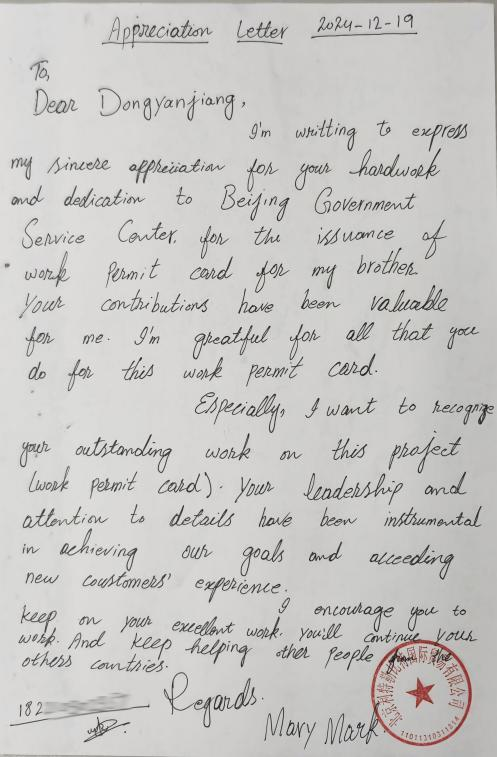 Appreciation Letter 2024-12-19
To,
Dear Dongyanjiang,
I'm writting to express
my sincere appreciation for your hardwork
and dedication to Beijing Government
Service Center, for the issuance of
work permit card for my brother.
Your contributions have been valuable
for me. I'm greatful for all that you
do for this work permit card.
Especially, I want to recognize
your outstanding work on this project
(work permit card). Your leadership and
attention to details have been instrumental
in achieving our goals and acceeding
new coustomers' experience.
I encourage you to
keep on your excellent work. You'll continue your
work. And keep helping other people from the
others countries.
Regards.
182
Mary Mark.